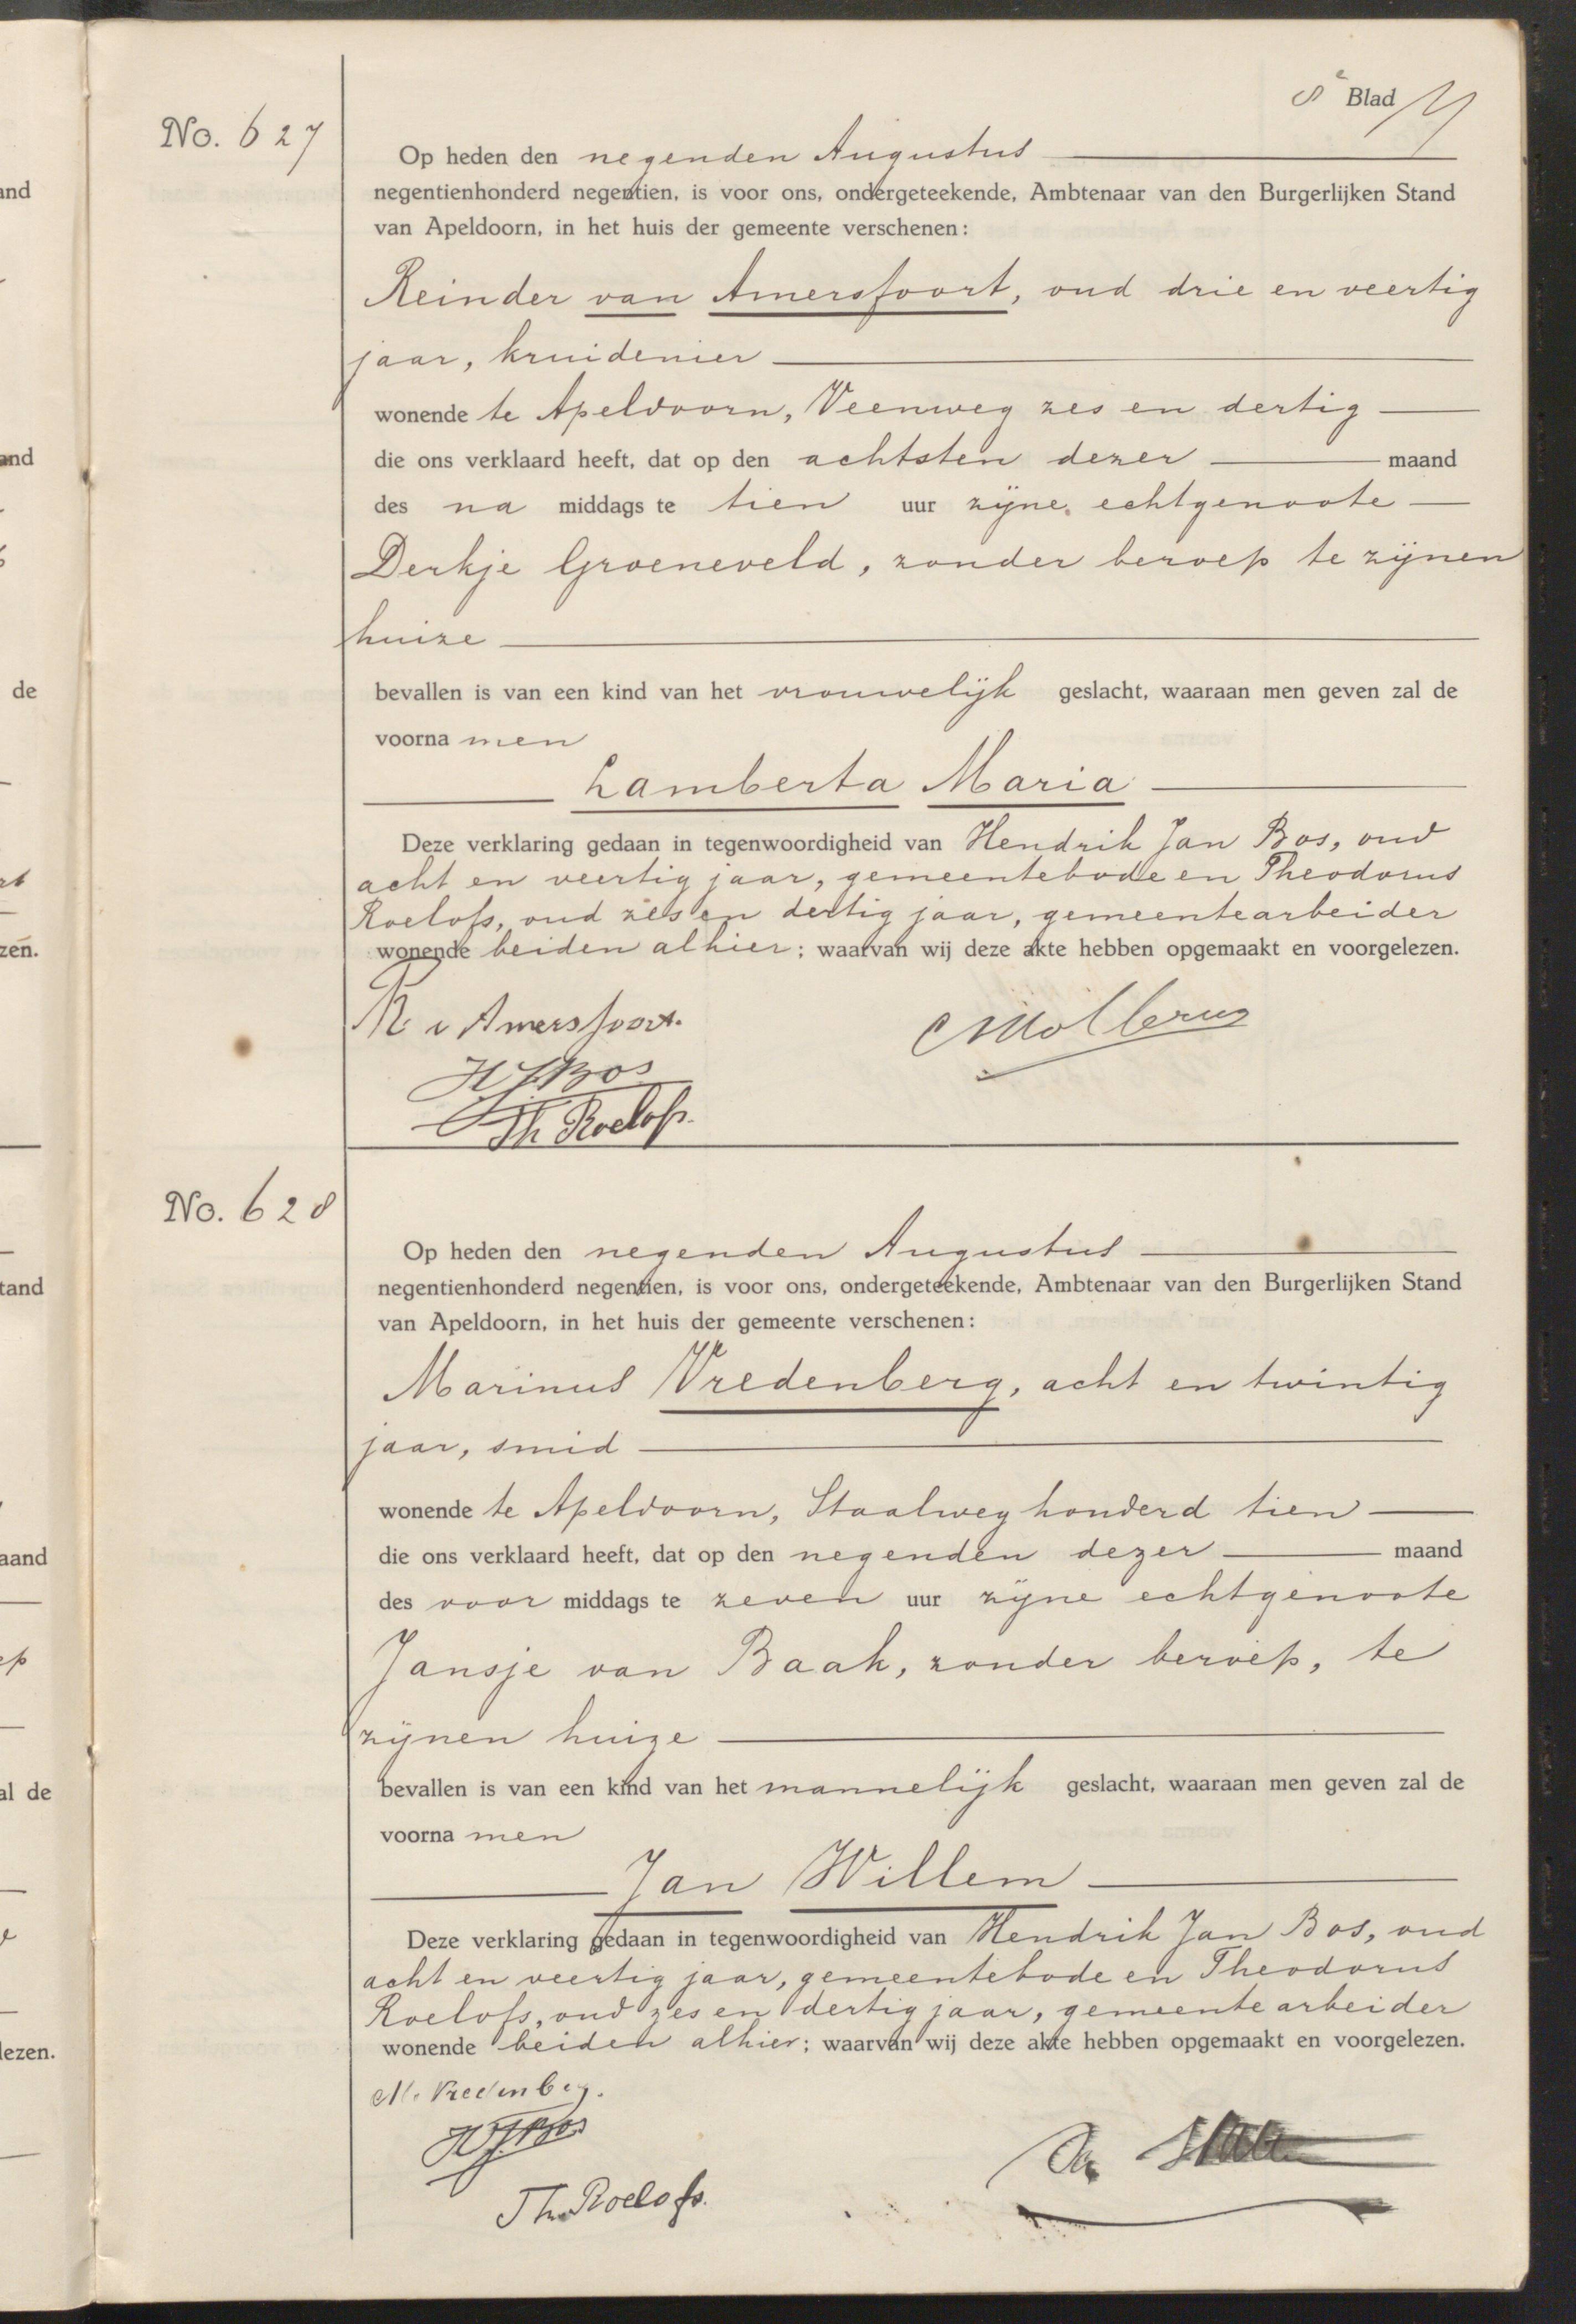 8e Blad
No. 627
Op heden den negenden Augustus
negentienhonderd negentien, is voor ons, ondergeteekende, Ambtenaar van den Burgerlijken Stand
van Apeldoorn, in het huis der gemeente verschenen:
Reinder van Amersfoort, oud drie en veertig
jaar, kruidenier
wonende te Apeldoorn, Veenweg zes en dertig
die ons verklaard heeft, dat op den achtsten dezer maand
des na middags te tien uur zijne echtgenoote
Derkje Groeneveld, zonder beroep te zijnen
huize
bevallen is van een kind van het vrouwelijk geslacht, waaraan men geven zal de
voorna men
Lamberta Maria
Deze verklaring gedaan in tegenwoordigheid van Hendrik Jan Bos, oud
acht en veertig jaar, gemeentebode en Theodorus
Roelofs, oud zes en dertig jaar, gemeentearbeider
wonende beiden alhier; waarvan wij deze akte hebben opgemaakt en voorgelezen.
R v Amersfoort.
CMollerus
HJBos
Th Roelofs.
No. 628
Op heden den negenden Augustus
negentienhonderd negentien, is voor ons, ondergeteekende, Ambtenaar van den Burgerlijken Stand
van Apeldoorn, in het huis der gemeente verschenen:
Marinus Vredenberg, acht en twintig
jaar, smid
wonende te Apeldoorn, Staalweg honderd tien
die ons verklaard heeft, dat op den negenden dezer maand
des voor middags te zeven uur zijne echtgenoote
Jansje van Baak, zonder beroep, te
zijnen huize
bevallen is van een kind van het mannelijk geslacht, waaraan men geven zal de
voorna men
Jan Willem
Deze verklaring gedaan in tegenwoordigheid van Hendrik Jan Bos, oud
acht en veertig jaar, gemeentebode en Theodorus
Roelofs, oud zes en dertig jaar, gemeentearbeider
wonende beiden alhier; waarvan wij deze akte hebben opgemaakt en voorgelezen.
M. Vredenberg.
HJBos
Th. Roelofs.
and
and
de
zen.
tand
aand
ep
al de
lezen.